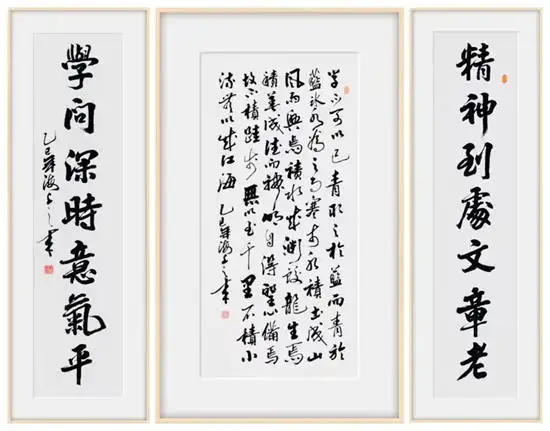 精神到處文章老
学不可以已青取之於藍而青於
藍冰水為之而寒於水積土成山
風雨興焉積水成渊蛟龍生焉
積善成德而神明自得聖心備焉
故不積跬步無以至千里不積小
流無以成江海 乙巳海書
學問深時意氣平
乙巳海書